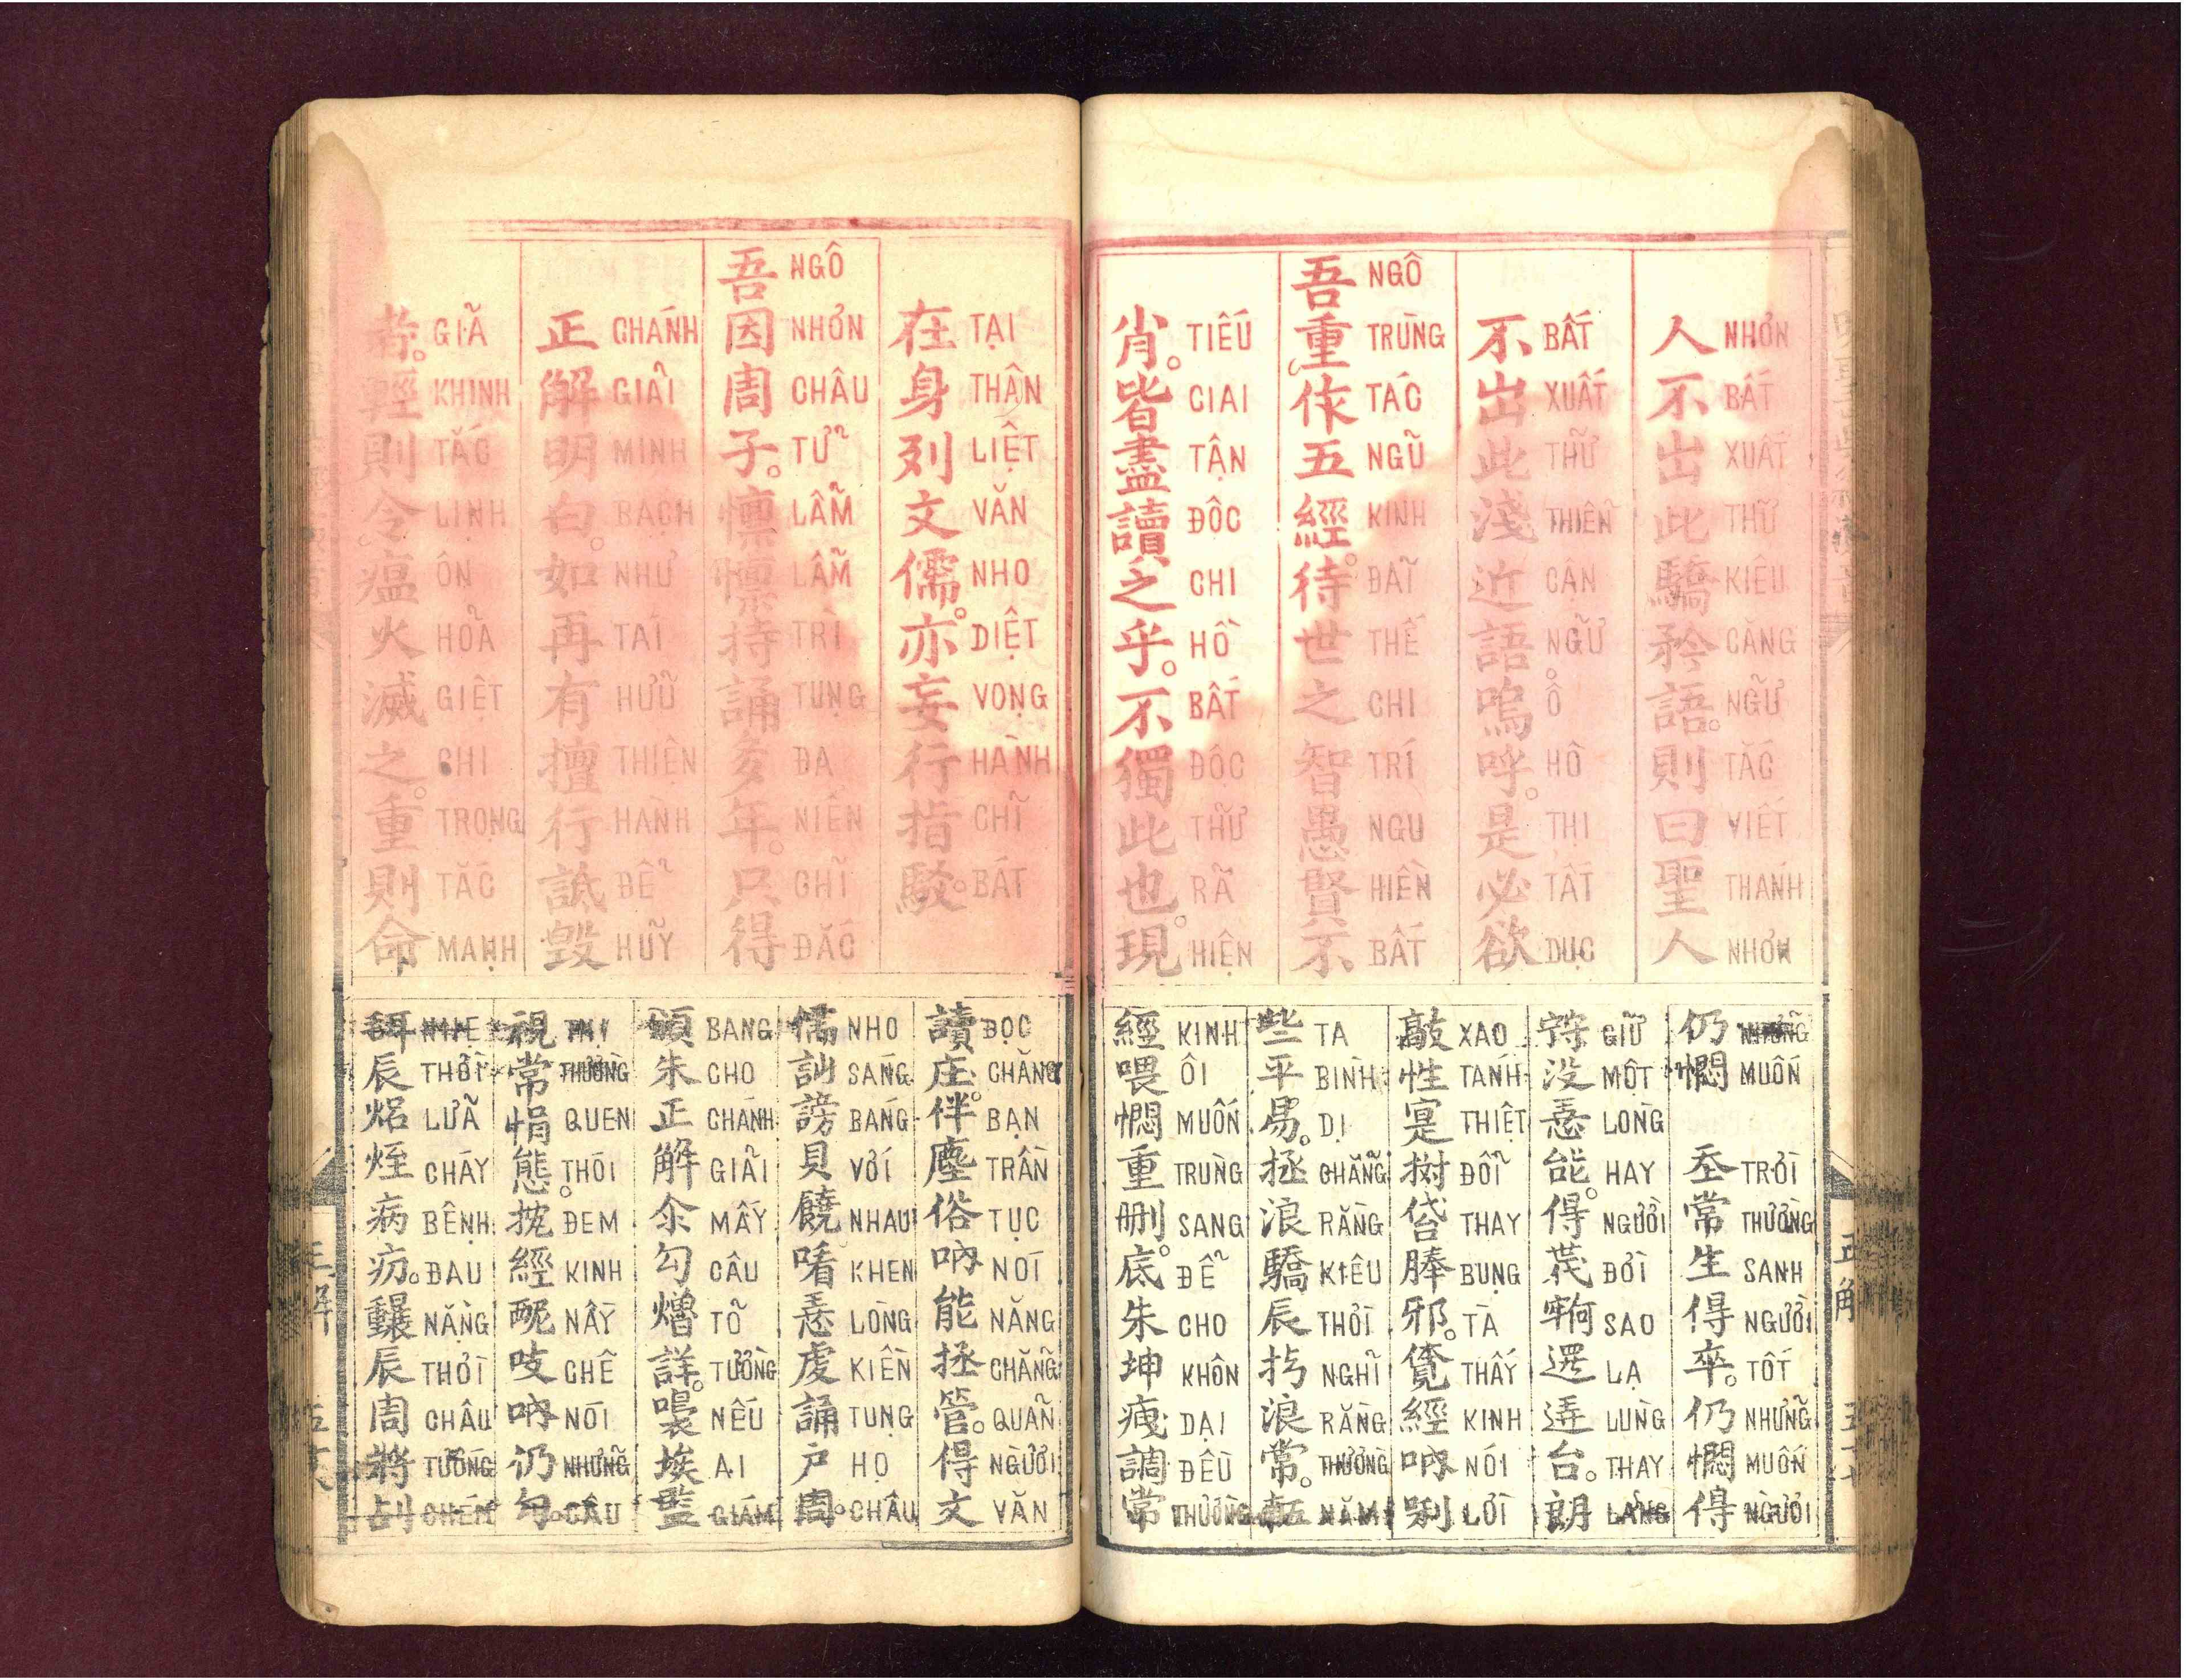 人不出此驕矜語。則曰聖人
NHƠN BẤT XUẤT THỬ KIÊU CĂNG NGỮ TẮC VIẾT THÁNH NHƠN
不出此淺近語。嗚呼。是必欲
BẤT XUẤT THỬ THIỂN CẬN NGỮ Ô HÔ THỊ TẤT DỤC
吾重作五經。待世之智愚賢不
NGÔ TRÙNG TÁC NGŨ KINH ĐÃI THẾ CHI TRÍ NGU HIỀN BẤT
肖。皆盡讀之乎。不獨此也。現
TIẾU GIAI TẬN ĐỘC CHI HỒ BẤT ĐỘC THỬ RÃ HIỆN
仍憫
NHỮNG MUỐN
常生得卒。仍憫得
TRỜI THƯỜNG SANH NGƯỜI TỐT NHỮNG MUỐN NGƯỜI
没𢚸能。得
GIỮ MỘT LÒNG HAY NGƯỜI ĐỜI SAO LẠ LÙNG THAY LẲNG
敲性寔邪。經吶唎
XAO TÁNH THIỆT ĐỔI THAY BỤNG TÀ THẤY KINH NÓI LỜI
些平易。拯浪驕辰浪常。
TA BÌNH DỊ CHẲNG RẰNG KIÊU THỜI NGHĨ RẰNG THƯỜNG NĂM
經喂憫重刪。底朱坤調常
KINH ÔI MUỐN TRÙNG SANG ĐỂ CHO KHÔN DẠI ĐỀU THƯỜNG
在身列文儒。亦妄行指駁。
TẠI THÂN LIỆT VĂN NHO DIỆT VỌNG HÀNH CHỈ BÁT
吾因周子。懔懔持誦多年。只得
NGÔ NHƠN CHÂU TỬ LẪM LẪM TRÌ TỤNG ĐA NIÊN CHĨ ĐẮC
正解明白。如再有擅行詆毀
CHÁNH GIẢI MINH BẠCH NHƯ TÁI HỮU THIỆN HÀNH ĐỂ HỦY
者。輕則令瘟火滅之。重則命
GIẢ KHINH TẮC LỊNH ÔN HỎA GIỆT CHI TRỌNG TẮC MẠNH
讀庄。伴塵俗吶能拯管。得文
ĐỌC CHĂNG BẠN TRẦN TỤC NÓI NĂNG CHẲNG QUẢN NGƯỜI VĂN
儒訕謗貝饒𢚸虔誦户周。
NHO SÁNG BÁNG VỚI NHAU KHEN LÒNG KIỀN TỤNG HỌ CHÂU
頒朱正解尒勾詳。埃監
BANG CHO CHÁNH GIẢI MẤY CÂU TỎ TƯỜNG NẾU AI GIÁM
視常悁態。經吶仍勾。
THỊ THƯỜNG QUEN THÓI ĐEM KINH NẦY CHÊ NÓI NHỮNG CÂU
辰焒病疠。辰周將
NHẸ THỜI LỬA CHÁY BỆNH ĐAU NẶNG THỜI CHÂU TƯỚNG CHÉM
正解